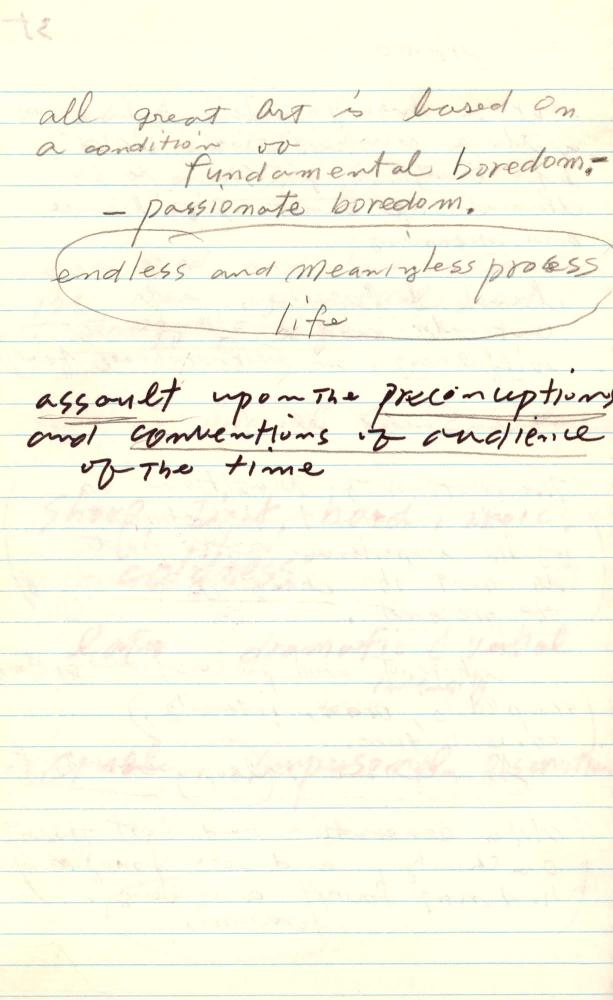 all great art is based on
a condition of
fundamental boredom. -
- passionate boredom.
endless and meaningless process
life
assault upon the preconceptions
and conventions of audience
of the time